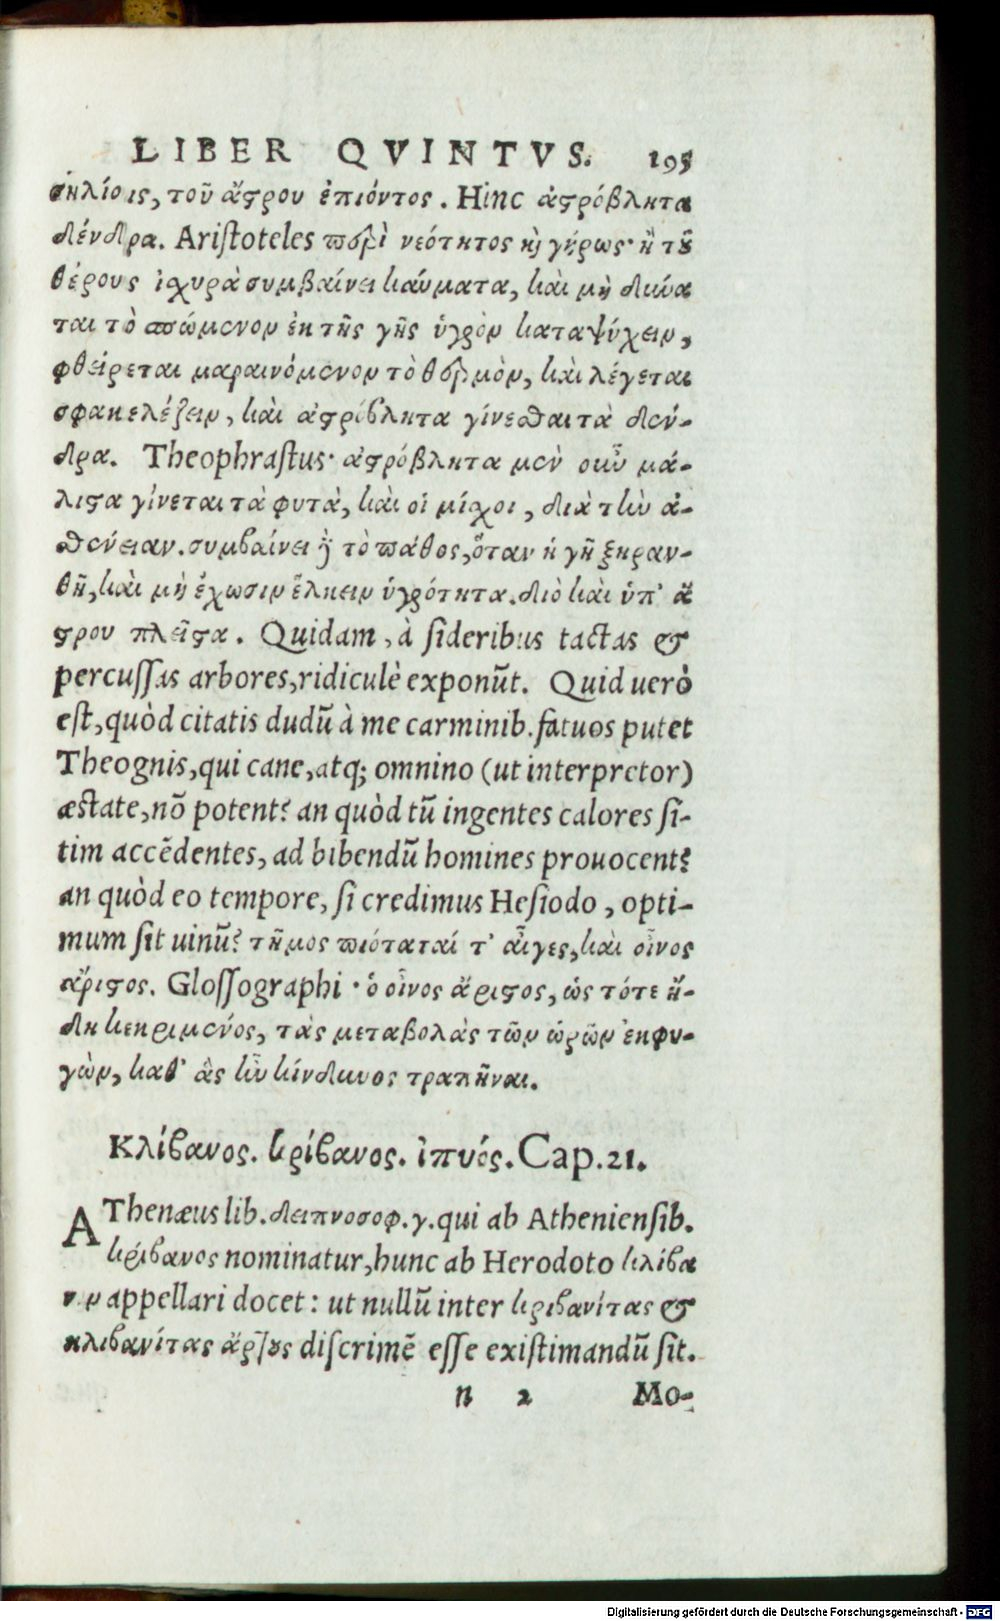 LIBER QVINTVS. 195
σηλίοις, τοῦ ἄϛρου ἐπιόντος. Hinc ἀϛρόβλητα
δένδρα. Ariſtoteles περὶ νεότητος καὶ γήρως· ἢ τοῦ
θέρους ἰχυρὰ συμβαίνει καύματα, καὶ μὴ δύνα
ται τὸ σπώμενον ἐκ τῆς γῆς ὑγρὸν καταψύχειν,
φθείρεται μαραινόμενον τὸ θερμὸν, καὶ λέγεται
σφακελίζειν, καὶ ἀϛρόβλητα γίνεσθαι τὰ δέν-
δρα. Theophraſtus· ἀϛρόβλητα μὲν οὖν μά-
λιϛα γίνεται τὰ φυτὰ, καὶ οἱ μίχοι, διὰ τὴν ἀ-
σθένειαν. συμβαίνει δὲ τὸ πάθος, ὅταν ἡ γῆ ξηραν-
θῆ, καὶ μὴ ἔχωσιν ἕλκειν ὑγρότητα. διὸ καὶ ὑπ' ἄ
ϛρου πλεῖϛα. Quidam, à ſideribus tactas &
percuſſas arbores, ridiculè exponũt. Quid uerò
eſt, quòd citatis dudũ à me carminib. fatuos putet
Theognis, qui cane, atq; omnino (ut interpretor)
æſtate, nõ potent? an quòd tũ ingentes calores ſi-
tim accẽdentes, ad bibendũ homines prouocent?
an quòd eo tempore, ſi credimus Heſiodo, opti-
mum ſit uinũ? τῆμος πιόταταί τ' αἶγες, καὶ οἶνος
ἄριϛος. Gloſſographi· ὁ οἶνος ἄριϛος, ὡς τότε ἤ-
δη κεκριμένος, τὰς μεταβολὰς τῶν ὡρῶν ἐκφυ-
γὼν, καθ' ἃς ἦν κίνδυνος τραπῆναι.
Κλίβανος. κρίβανος. ἰπνός. Cap. 21.
AThenæus lib. δειπνοσοφ. γ. qui ab Athenienſib.
κρίβανος nominatur, hunc ab Herodoto κλίβα
νον appellari docet: ut nullũ inter κριβανίτας &
κλιβανίτας ἄρτους diſcrimẽ eſſe exiſtimandũ ſit.
n 2 Mo-
Digitalisierung gefördert durch die Deutsche Forschungsgemeinschaft - DFG